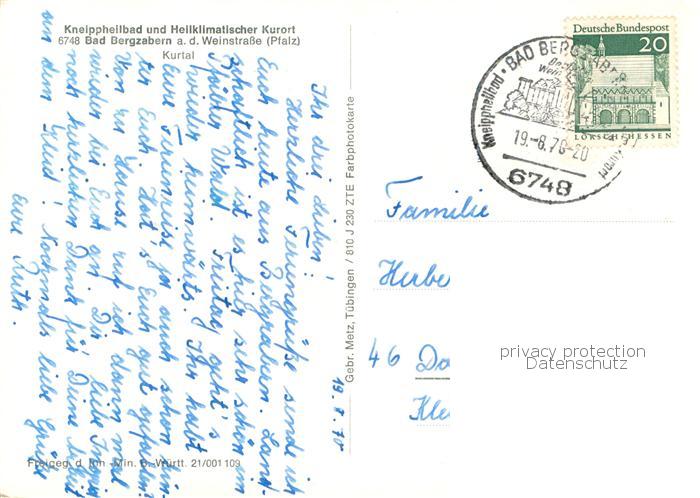 Kneippheilbad und Heilklimatischer Kurort
6748 Bad Bergzabern a. d. Weinstraße (Pfalz)
Kurtal
Ihr drei Lieben!
Herzliche Feriengrüße sende ich
Euch heute aus Bergzabern. Land-
schaftlich ist es hier sehr schön im
Pfälzer Wald. Freitag geht's
wieder heimwärts. Ihr habt
Eure Ferienreise ja auch schon hin-
ter Euch. Hat's Euch gut gefallen?
Von zu Hause ruf ich dann mal
wieder bei Euch an. Dir, liebe
noch herzlichen Dank für Deine Arbeit
an dem Kleid! Nochmals liebe Grüße
Eure Ruth.
Freigeg. d. Inn.-Min. B.-Württ. 21/001109
Gebr. Metz, Tübingen / 810 J 230 ZTE Farbphotokarte
19. 8. 70
Deutsche Bundespost
20
LORSCH/HESSEN
Kneippheilbad · BAD BERGZABERN
19.-8.70-20
6748
Familie
Herbe
46 Do
Kle
privacy protection
Datenschutz